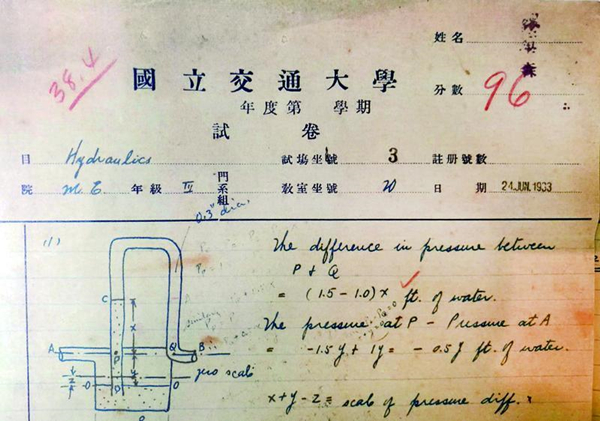 姓名
38.4
國立交通大學
分數 96
年度第 學期
試卷
目 Hydraulics 試場坐號 3 註册號數
院 M.E. 年級 IV 門系組 教室坐號 20 日期 24 JUN. 1933
0.3" dia.
(1)
The difference in pressure between
P & Q
= (1.5 - 1.0) x ft. of water.
The pressure at P - Pressure at A
= -1.5y + 1y = -0.5y ft. of water.
x + y - z = scale of pressure diff.
C
x
A P Q B
y
zero scale
z
O D O